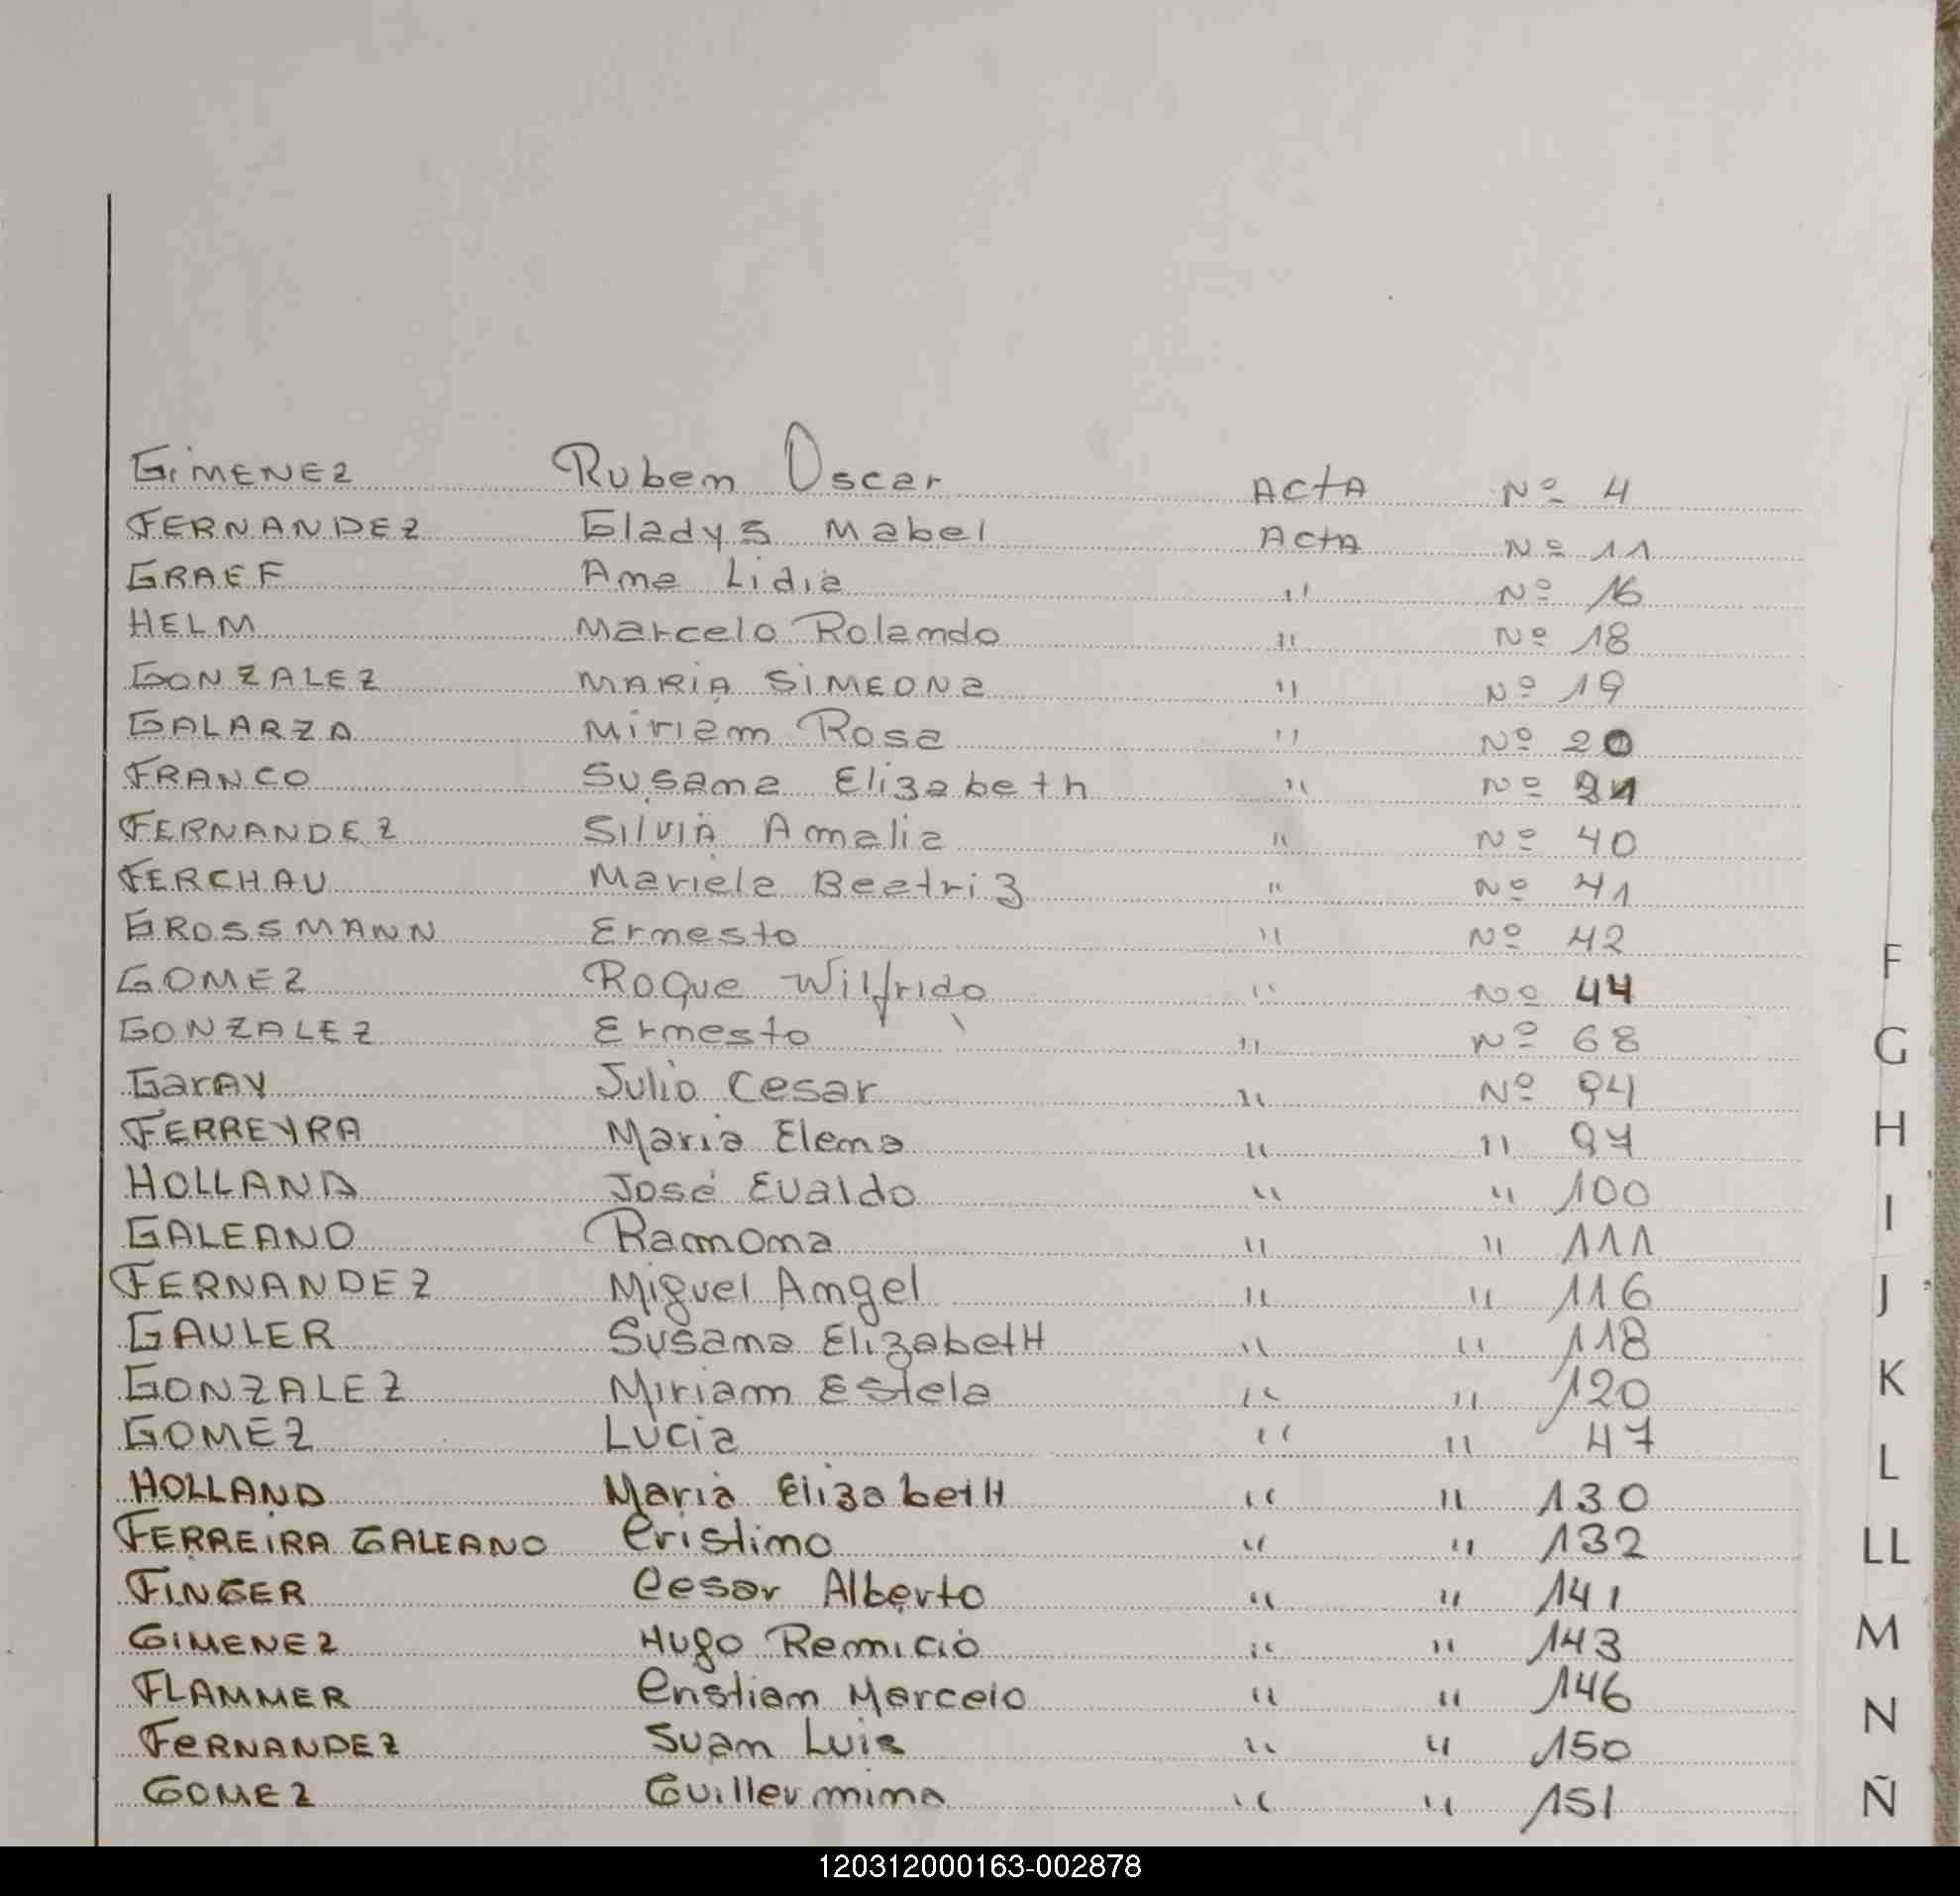 GIMENEZ Ruben Oscar ACTA Nº 4
FERNANDEZ Gladys Mabel ACTA Nº 11
GRAEF Ana Lidia " Nº 16
HELM Marcelo Rolando " Nº 18
GONZALEZ MARIA SIMEONA " Nº 19
GALARZA Miriam Rosa " Nº 20
FRANCO Susana Elizabeth " Nº 21
FERNANDEZ Silvia Amalia " Nº 40
FERCHAU Mariela Beatriz " Nº 41
GROSSMANN Ernesto " Nº 42
GOMEZ Roque Wilfrido " Nº 44
GONZALEZ Ernesto " Nº 68
Garay Julio Cesar " Nº 94
FERREYRA Maria Elena " " 97
HOLLAND José Evaldo " " 100
GALEANO Ramona " " 111
FERNANDEZ Miguel Angel " " 116
GAULER Susana ElizabetH " " 118
GONZALEZ Miriam Estela " " 120
GOMEZ Lucia " " 47
HOLLAND Maria ElizabetH " " 130
FERREIRA GALEANO Cristino " " 132
FINGER Cesar Alberto " " 141
GIMENEZ Hugo Remicio " " 143
FLAMMER Cristian Marcelo " " 146
FERNANDEZ Juan Luis " " 150
GOMEZ Guillermina " " 151
F
G
H
I
J
K
L
LL
M
N
Ñ
120312000163-002878